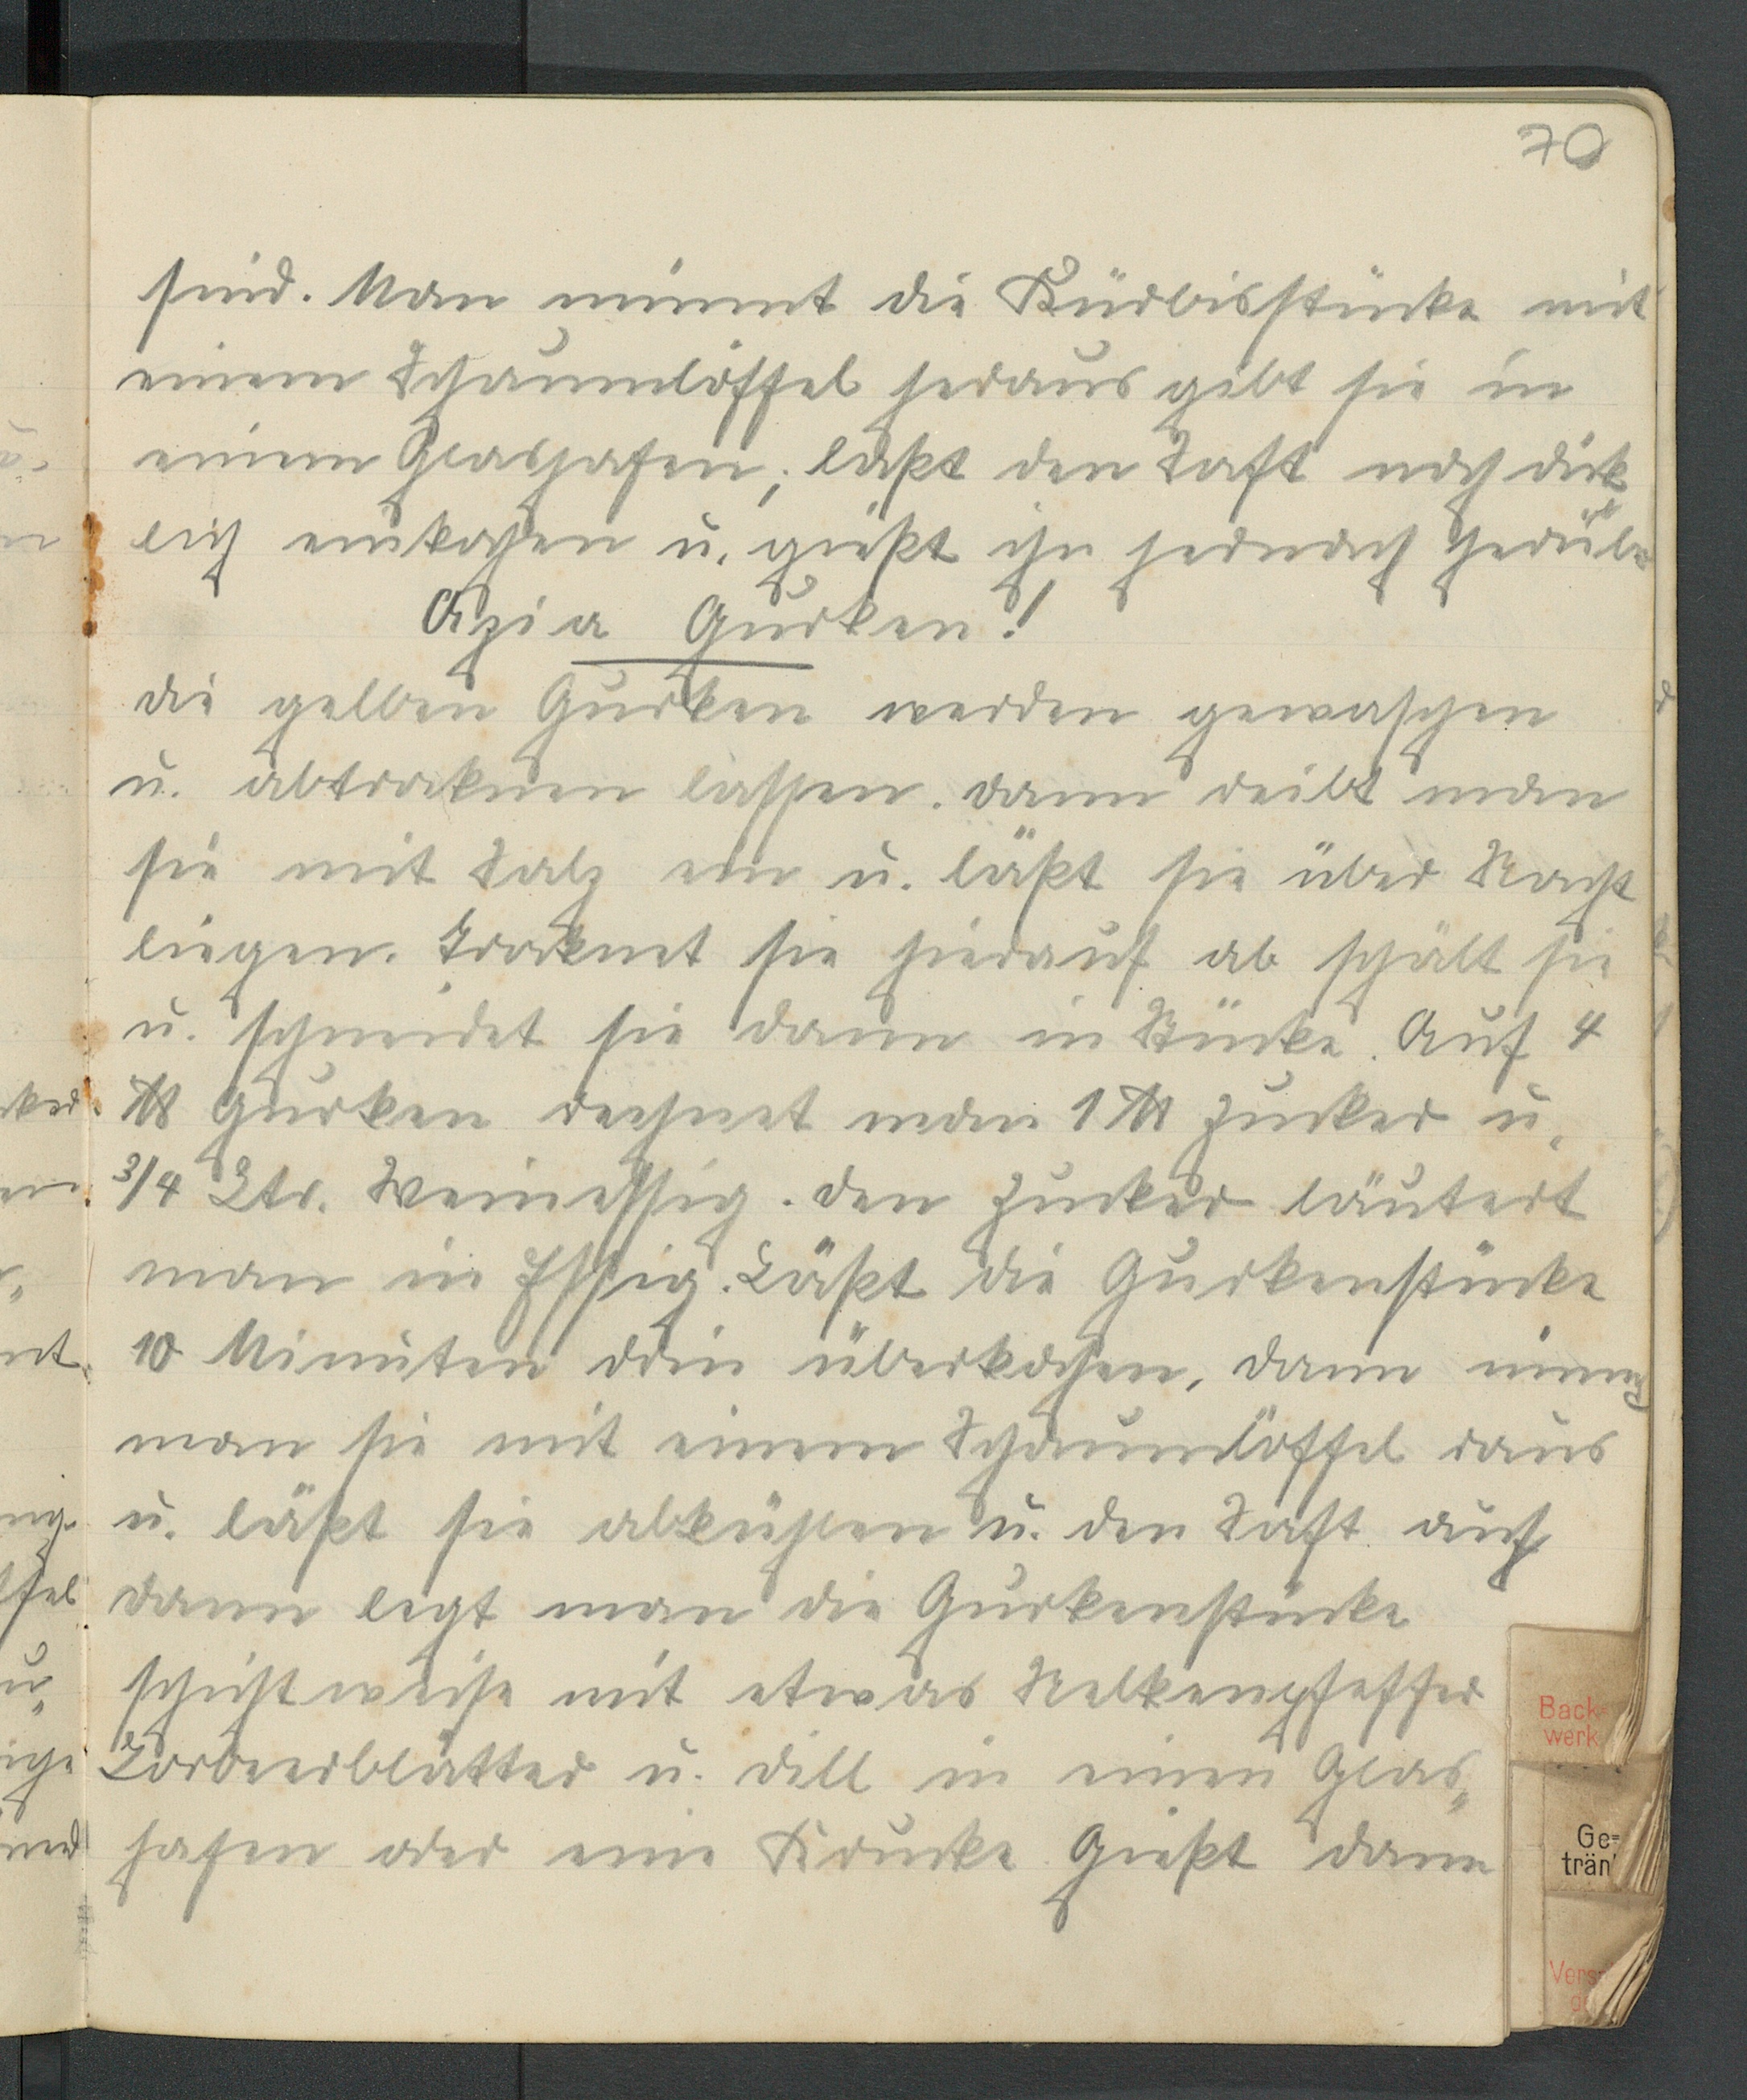 70
sind. Man nimmt die Kürbisstücke mit
einem Schaumlöffel heraus gibt sie in
einem Glashafen; läßt den Saft noch dick
lich einkochen u. gießt ihn hernach herüber
Azia Gurken!
die gelben Gurken werden gewaschen
u. abtroknen lassen. dann reibt man
sie mit Salz ein u. läßt sie über Nacht
liegen. Troknet sie hierauf ab schält sie
u. schneidet sie dann in Stücke. Auf 4
℔ Gurken rechnet man 1 ℔ Zucker u.
3/4 Ltr. Weinessig. den Zucker läutert
man in Essig. Läßt die Gurkenstücke
10 Minuten drin überkochen, dann nimmt
man sie mit einem Schaumlöffel raus
u. läßt sie abkühlen u. den Saft auch
dann legt man die Gurkenstücke
schichtweise mit etwas Nelkenpfeffer
Lorbeerblätter u. dill in einen Glas„
hafen oder eine Krucke. Gießt dann
Back-
werk
Ge-
trän
Vers